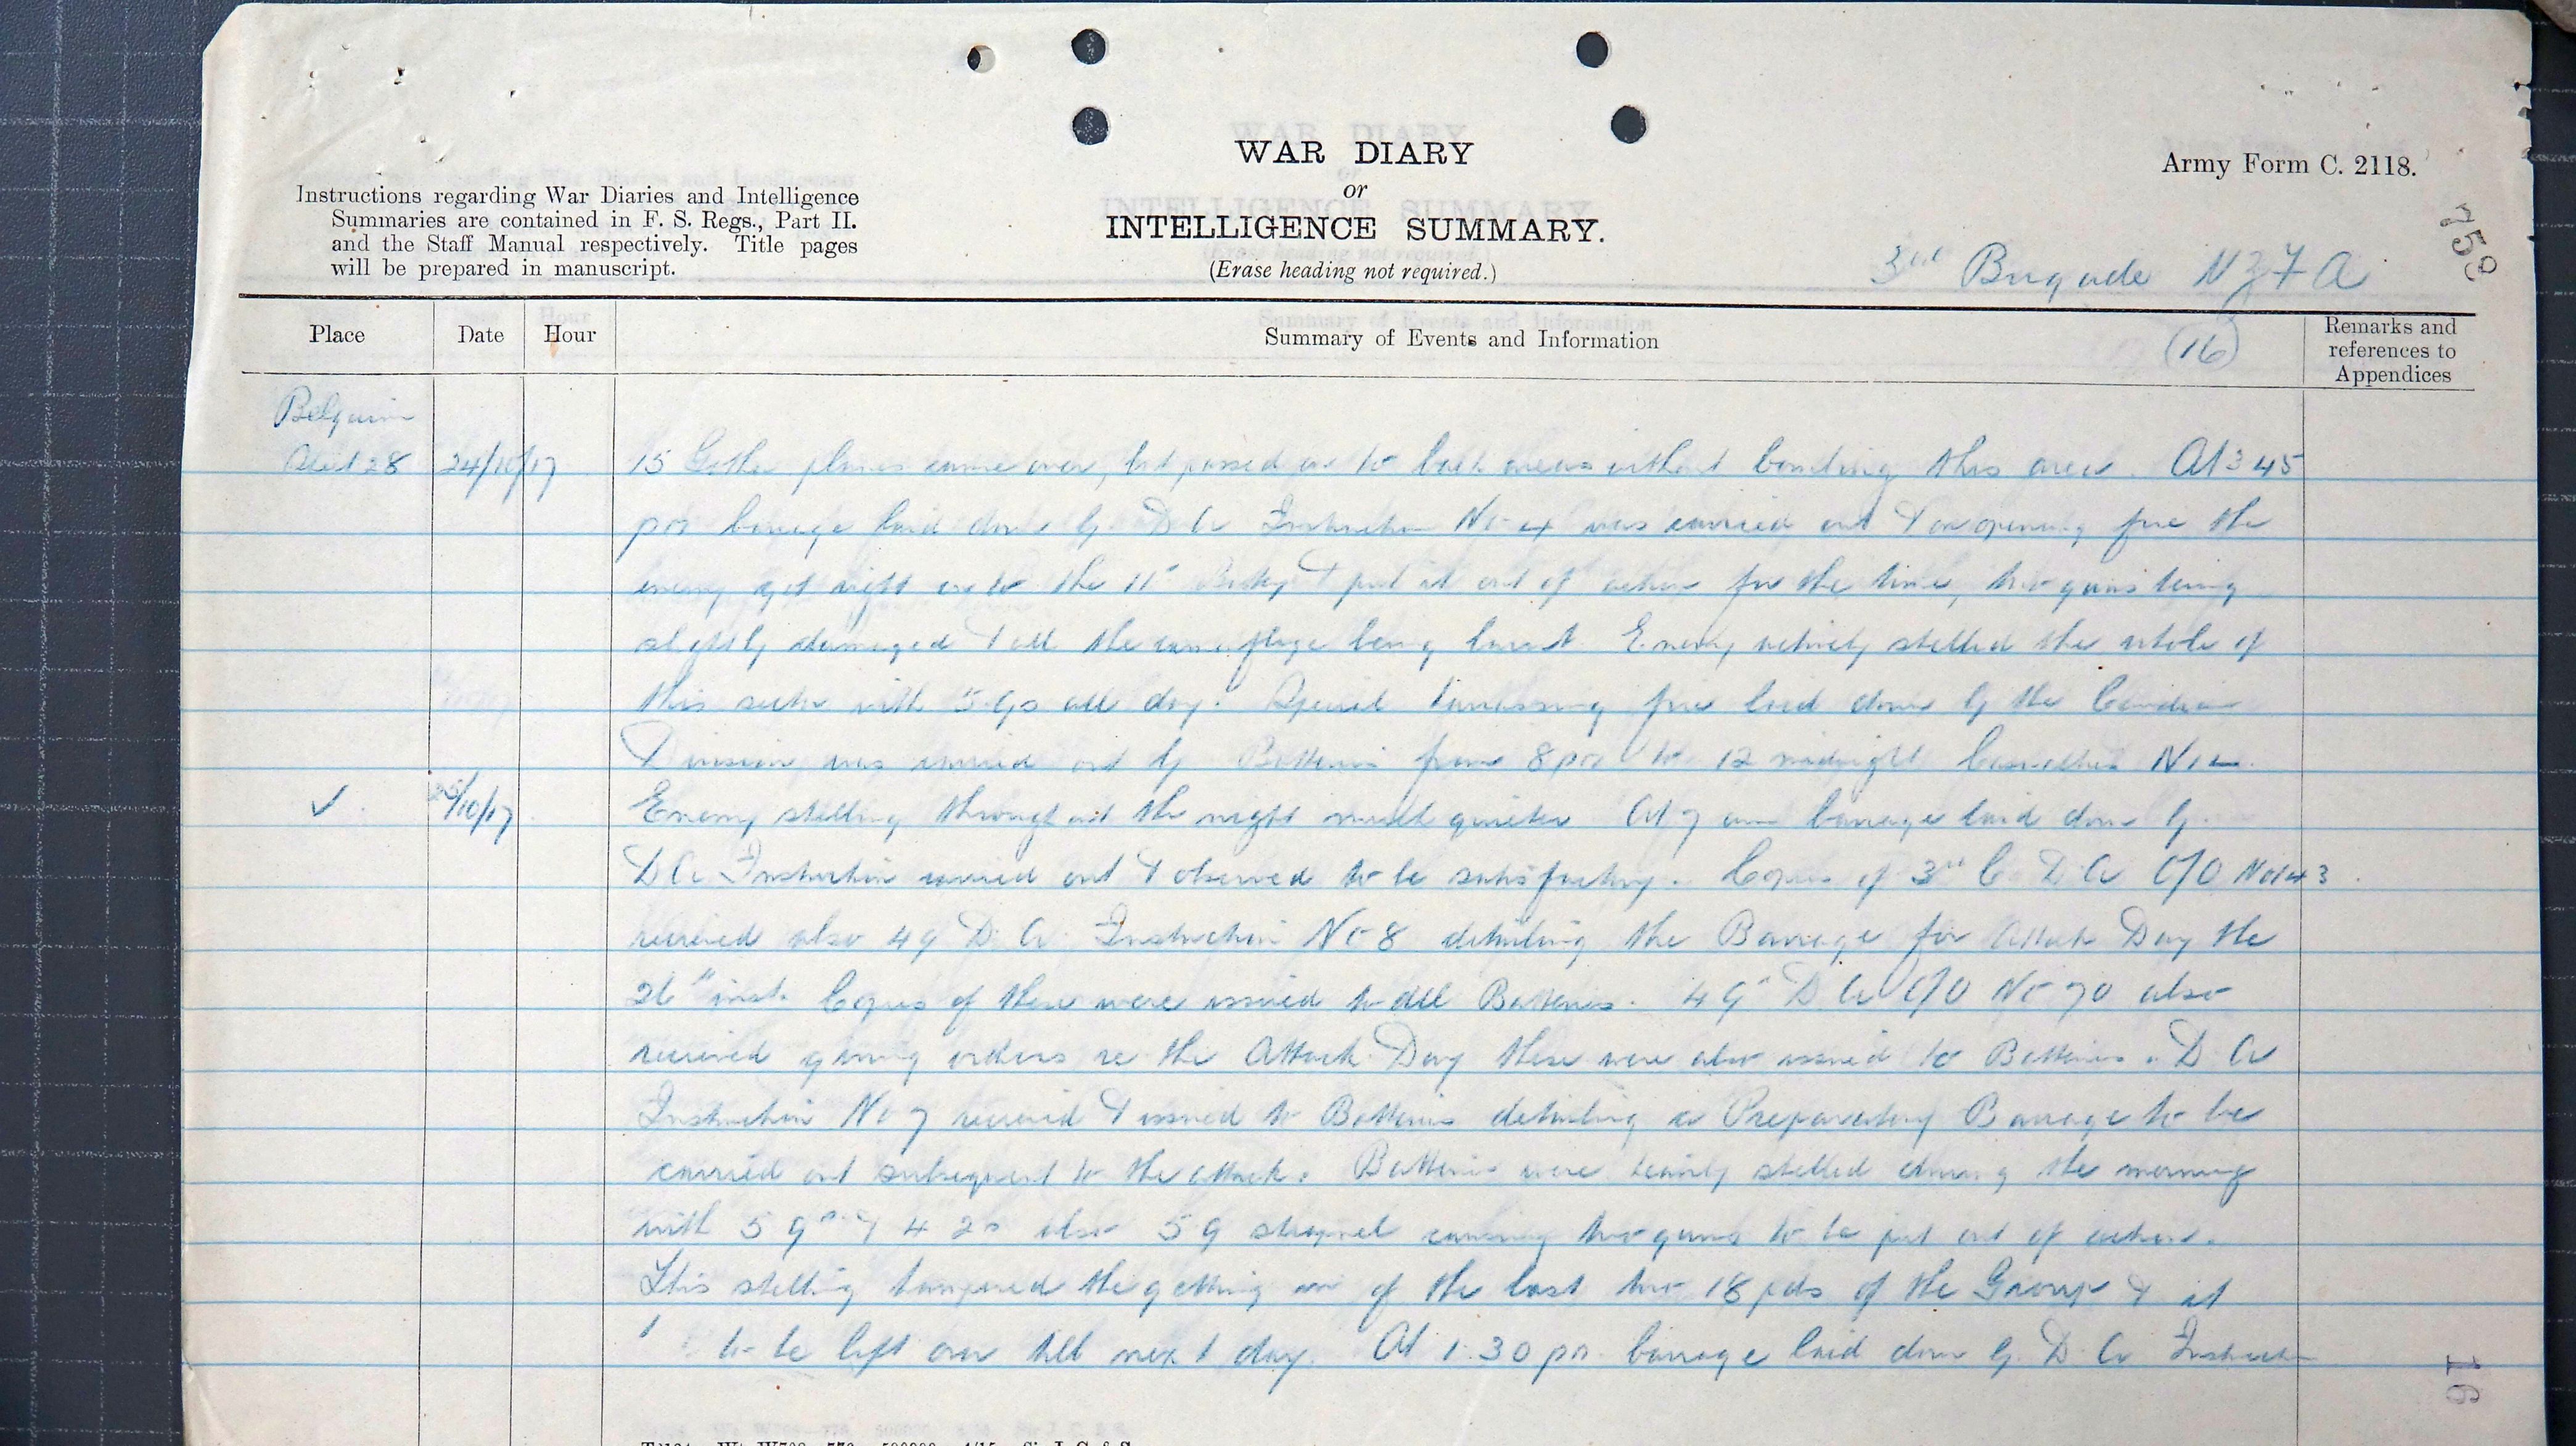 WAR DIARY
or
INTELLIGENCE SUMMARY.
(Erase heading not required.)
Army Form C. 2118.
Instructions regarding War Diaries and Intelligence
Summaries are contained in F. S. Regs., Part II.
and the Staff Manual respectively. Title pages
will be prepared in manuscript.
759
3rd Brigade NZFA
Place Date Hour Summary of Events and Information (16) Remarks and references to Appendices
Belguim
Sheet 28 24/10/17 15 Gotha planes came over, but passed on to back areas without bombing this area. At 3 45
pm barrage laid down by D A Instruction No 4 was carried out & on opening fire the
enemy got right on to the 11th Battery & put it out of action for the time, two guns being
slightly damaged & all the camouflage being burnt. Enemy actively shelled the whole of
this sector with 5.9s all day. Special harassing fire laid down by the Canadian
Division was carried out by Batteries from 8 pm to 12 midnight Casualties Nil.
✓ 25/10/17 Enemy shelling throughout the night much quieter At 7 am barrage laid down by
D A Instruction carried out & observed to be satisfactory. Copies of 3rd C D A O/O No 143
received also 49 D. A. Instruction No 8 detailing the Barrage for Attack Day the
26th inst. Copies of these were issued to all Batteries. 49th D A O/O No 70 also
received giving orders re the Attack Day these were also issued to Batteries. D A
Instruction No 7 received & issued to Batteries detailing a Preparatory Barrage to be
carried out subsequent to the attack. Batteries were heavily shelled during the morning
with 5 9s & 4 2s also 5 9 shrapnel causing two guns to be put out of action.
This shelling hampered the getting in of the last two 18 pds of the Group & it
to be left over till next day. At 1.30 pm. barrage laid down by D. A Instruction
16